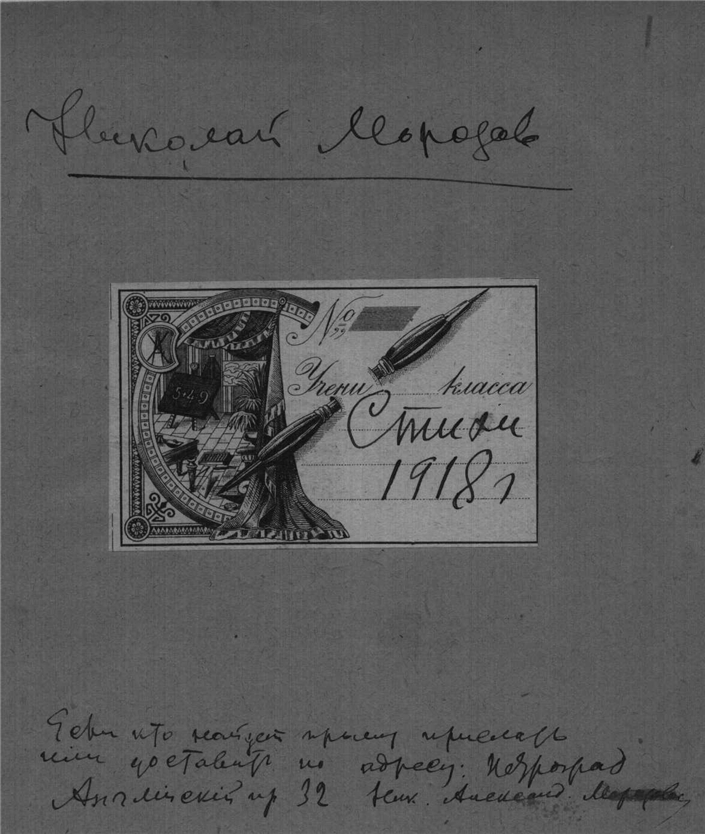 Николай Морозов
№
Учени класса
5+4=9
Стихи
1918 г
Если кто найдет прошу прислать
или доставить по адресу: Петроград
Английскій пр 32 Ник. Александ. Морозову